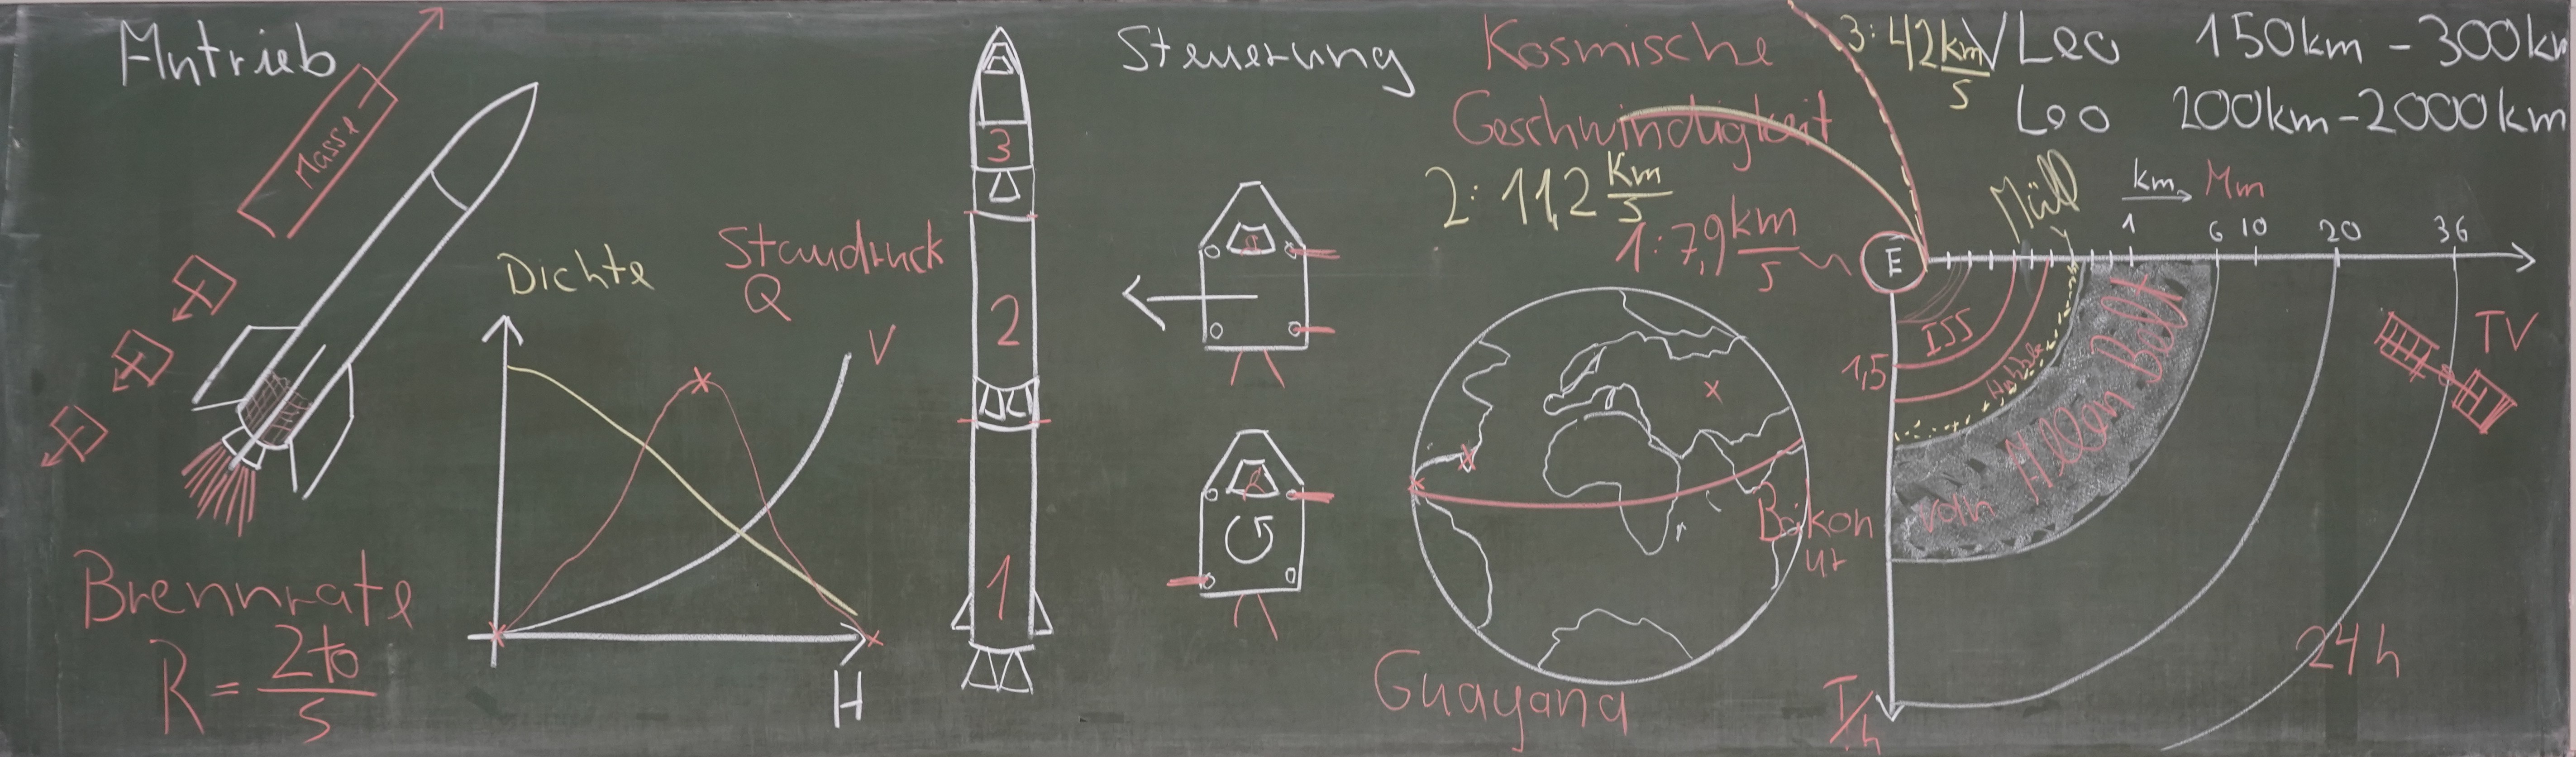 Antrieb
Masse
Dichte
Staudruck
Q
V
H
Brennrate
R = 2to/s
3
2
1
Steuerung
Kosmische
Geschwindigkeit
3: 42 km/s
2: 11,2 km/s
1: 7,9 km/s
VLeo 150km - 300km
Leo 200km - 2000km
Müll
km → Mm
1 6 10 20 36
E
ISS
1,5
Hubble
van Allen Belt
TV
24h
T/h
Baikon
ur
Guayana